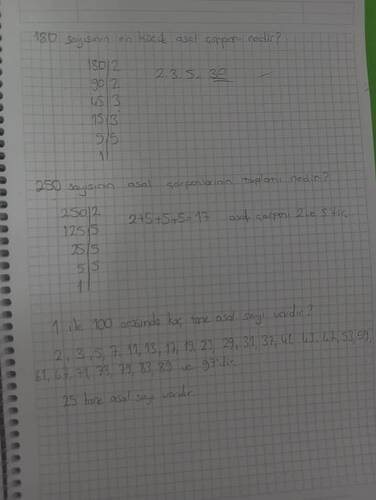 180 sayısının en küçük asal çarpanı nedir?
180|2
90|2
45|3
15|3
5|5
1|
2.3.5=30
250 sayısının asal çarpanlarının toplamı nedir?
250|2
125|5
25|5
5|5
1|
2+5+5+5=17 asal çarpanı 2 ile 5 tir.
1 ile 100 arasında kaç tane asal sayı vardır?
2, 3, 5, 7, 11, 13, 17, 19, 23, 29, 31, 37, 41, 43, 47, 53, 59,
61, 67, 71, 73, 79, 83, 89 ve 97'dir.
25 tane asal sayı vardır.